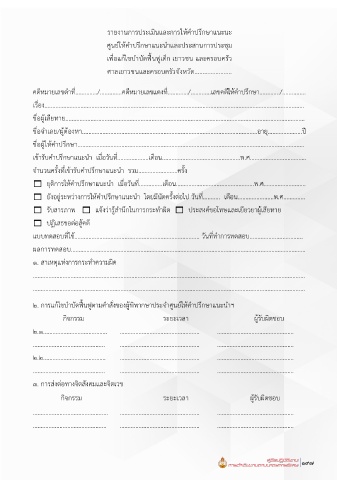 รายงานการประเมินและการให้คำปรึกษาแนะนะ
ศูนย์ให้คำปรึกษาแนะนำและประสานการประชุม
เพื่อแก้ไขบำบัดฟื้นฟูเด็ก เยาวชน และครอบครัว
ศาลเยาวชนและครอบครัวจังหวัด....................
คดีหมายเลขดำที่............/............คดีหมายเลขแดงที่............/............เลขคดีให้คำปรึกษา............/............
เรื่อง....................
ชื่อผู้เสียหาย....................
ชื่อจำเลย/ผู้ต้องหา....................อายุ....................ปี
ชื่อผู้ให้คำปรึกษา....................
เข้ารับคำปรึกษาแนะนำ เมื่อวันที่....................เดือน....................พ.ศ.....................
จำนวนครั้งที่เข้ารับคำปรึกษาแนะนำ รวม....................ครั้ง
☐ ยุติการให้คำปรึกษาแนะนำ เมื่อวันที่....................เดือน....................พ.ศ.....................
☐ ยังอยู่ระหว่างการให้คำปรึกษาแนะนำ โดยมีนัดครั้งต่อไป วันที่............ เดือน....................พ.ศ.............
☐ รับสารภาพ ☐ แจ้งว่ารู้สำนึกในการกระทำผิด ☐ ประสงค์ขอโทษและเยียวยาผู้เสียหาย
☐ ปฏิเสธขอต่อสู้คดี
แบบทดสอบที่ใช้.................... วันที่ทำการทดสอบ....................
ผลการทดสอบ....................
๑. สาเหตุแห่งการกระทำความผิด
....................
....................
๒. การแก้ไขบำบัดฟื้นฟูตามคำสั่งของผู้พิพากษาประจำศูนย์ให้คำปรึกษาแนะนำฯ
กิจกรรม ระยะเวลา ผู้รับผิดชอบ
๒.๑.................... .................... ....................
.................... .................... ....................
๒.๒.................... .................... ....................
.................... .................... ....................
๓. การส่งต่อทางจิตสังคมและจิตเวช
กิจกรรม ระยะเวลา ผู้รับผิดชอบ
.................... .................... ....................
.................... .................... ....................
คู่มือปฏิบัติงาน